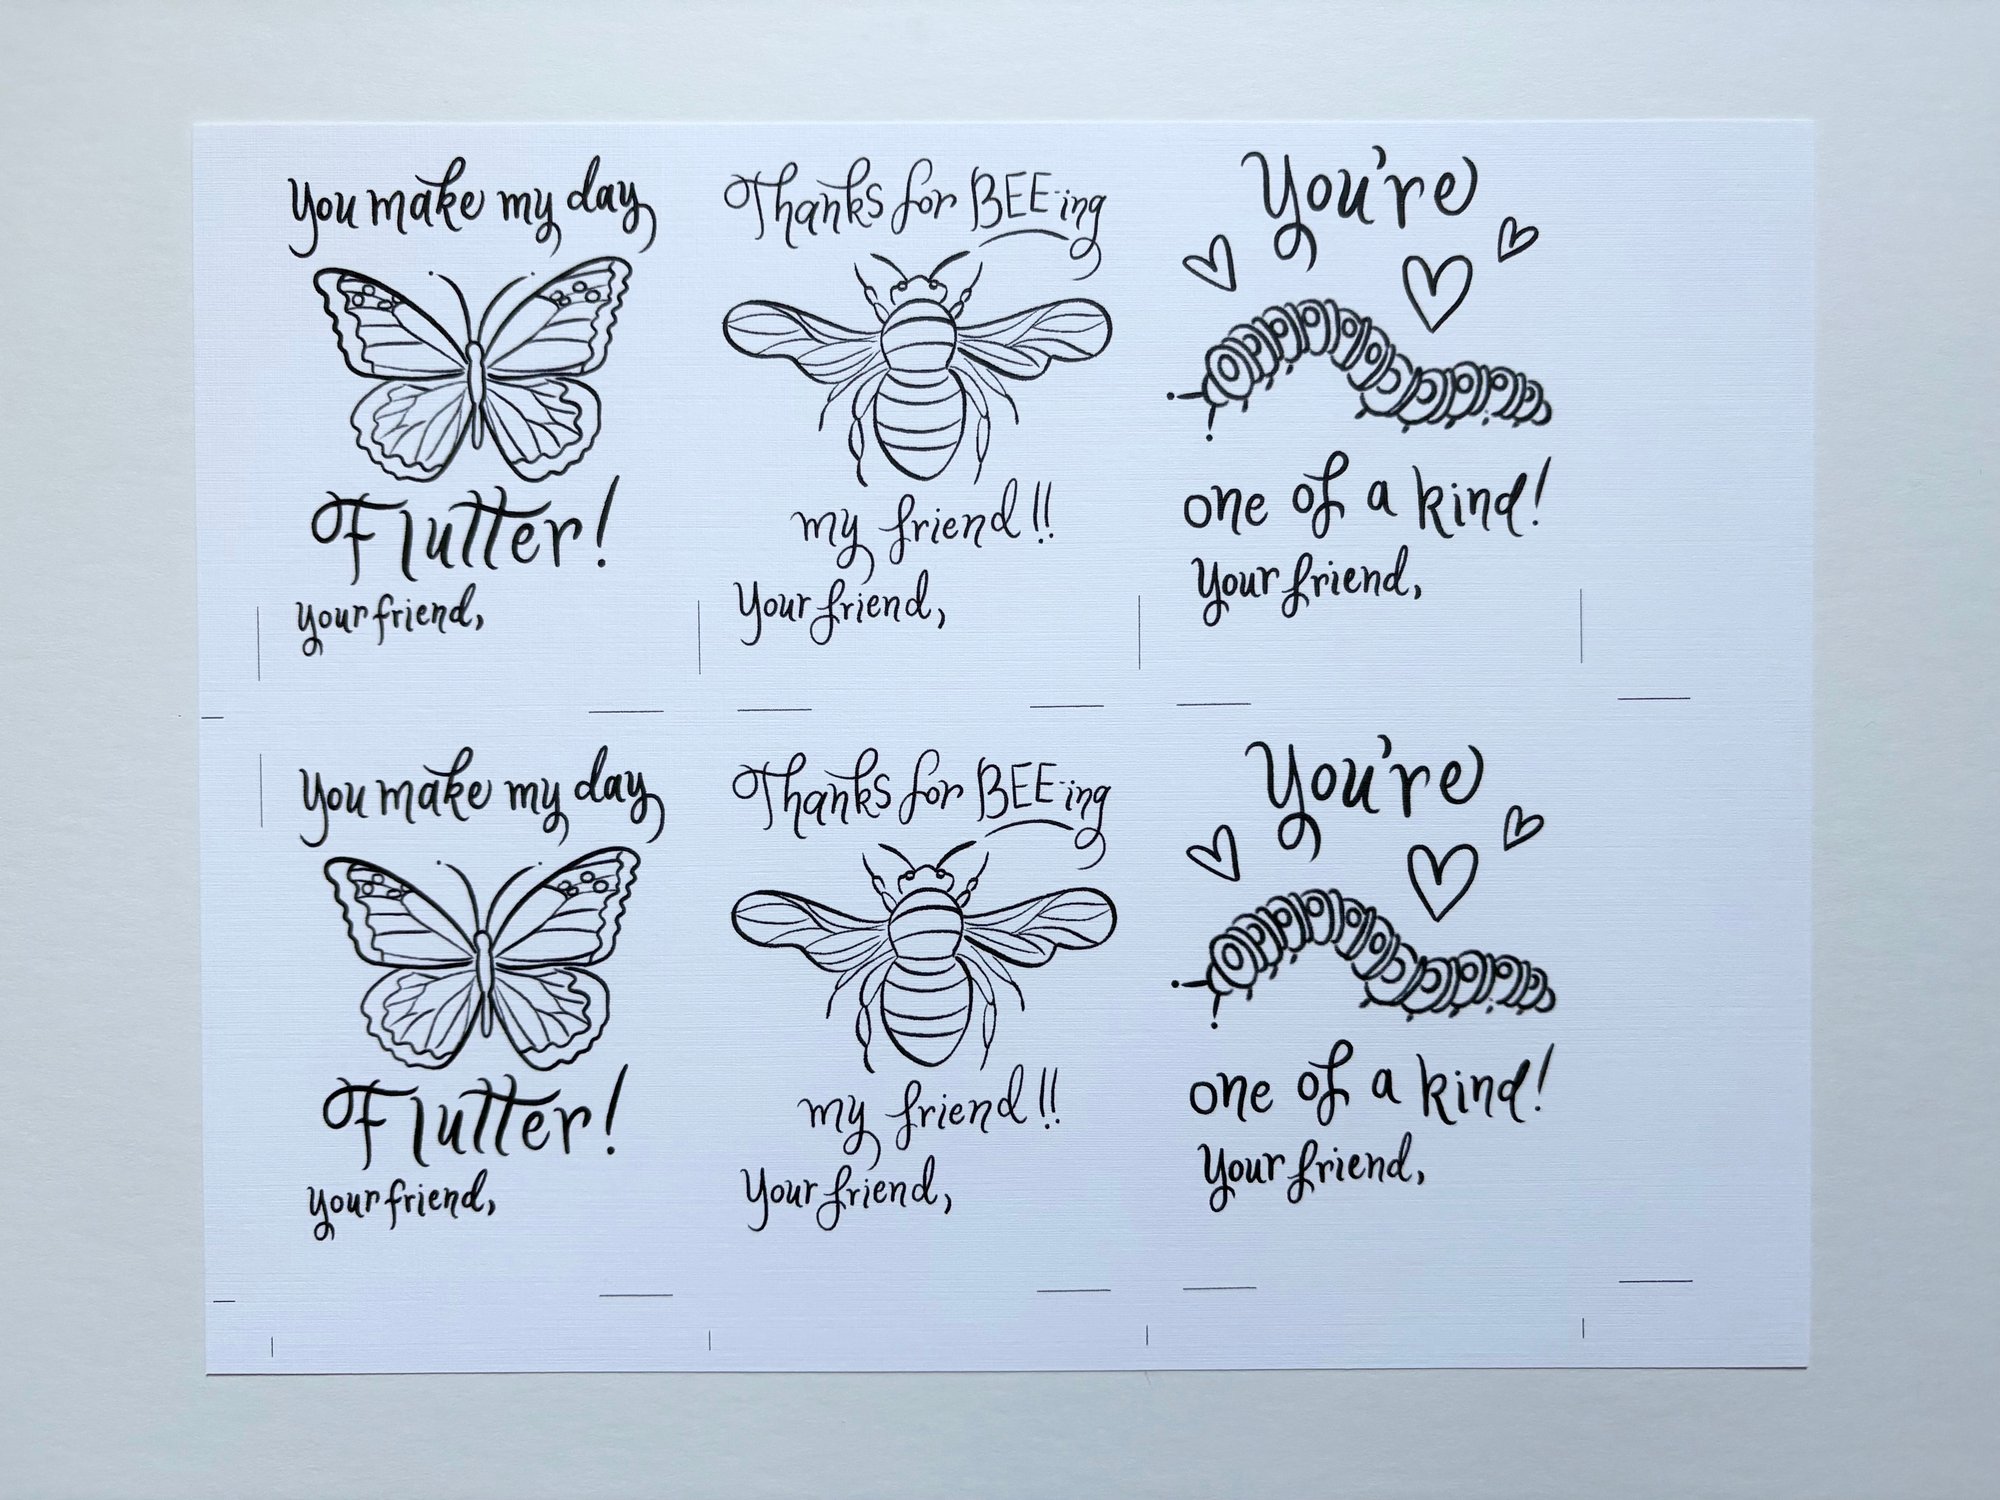 You make my day
Flutter!
your friend,
Thanks for BEE-ing
my friend!!
Your friend,
You're
one of a kind!
Your friend,
You make my day
Flutter!
your friend,
Thanks for BEE-ing
my friend!!
Your friend,
You're
one of a kind!
Your friend,